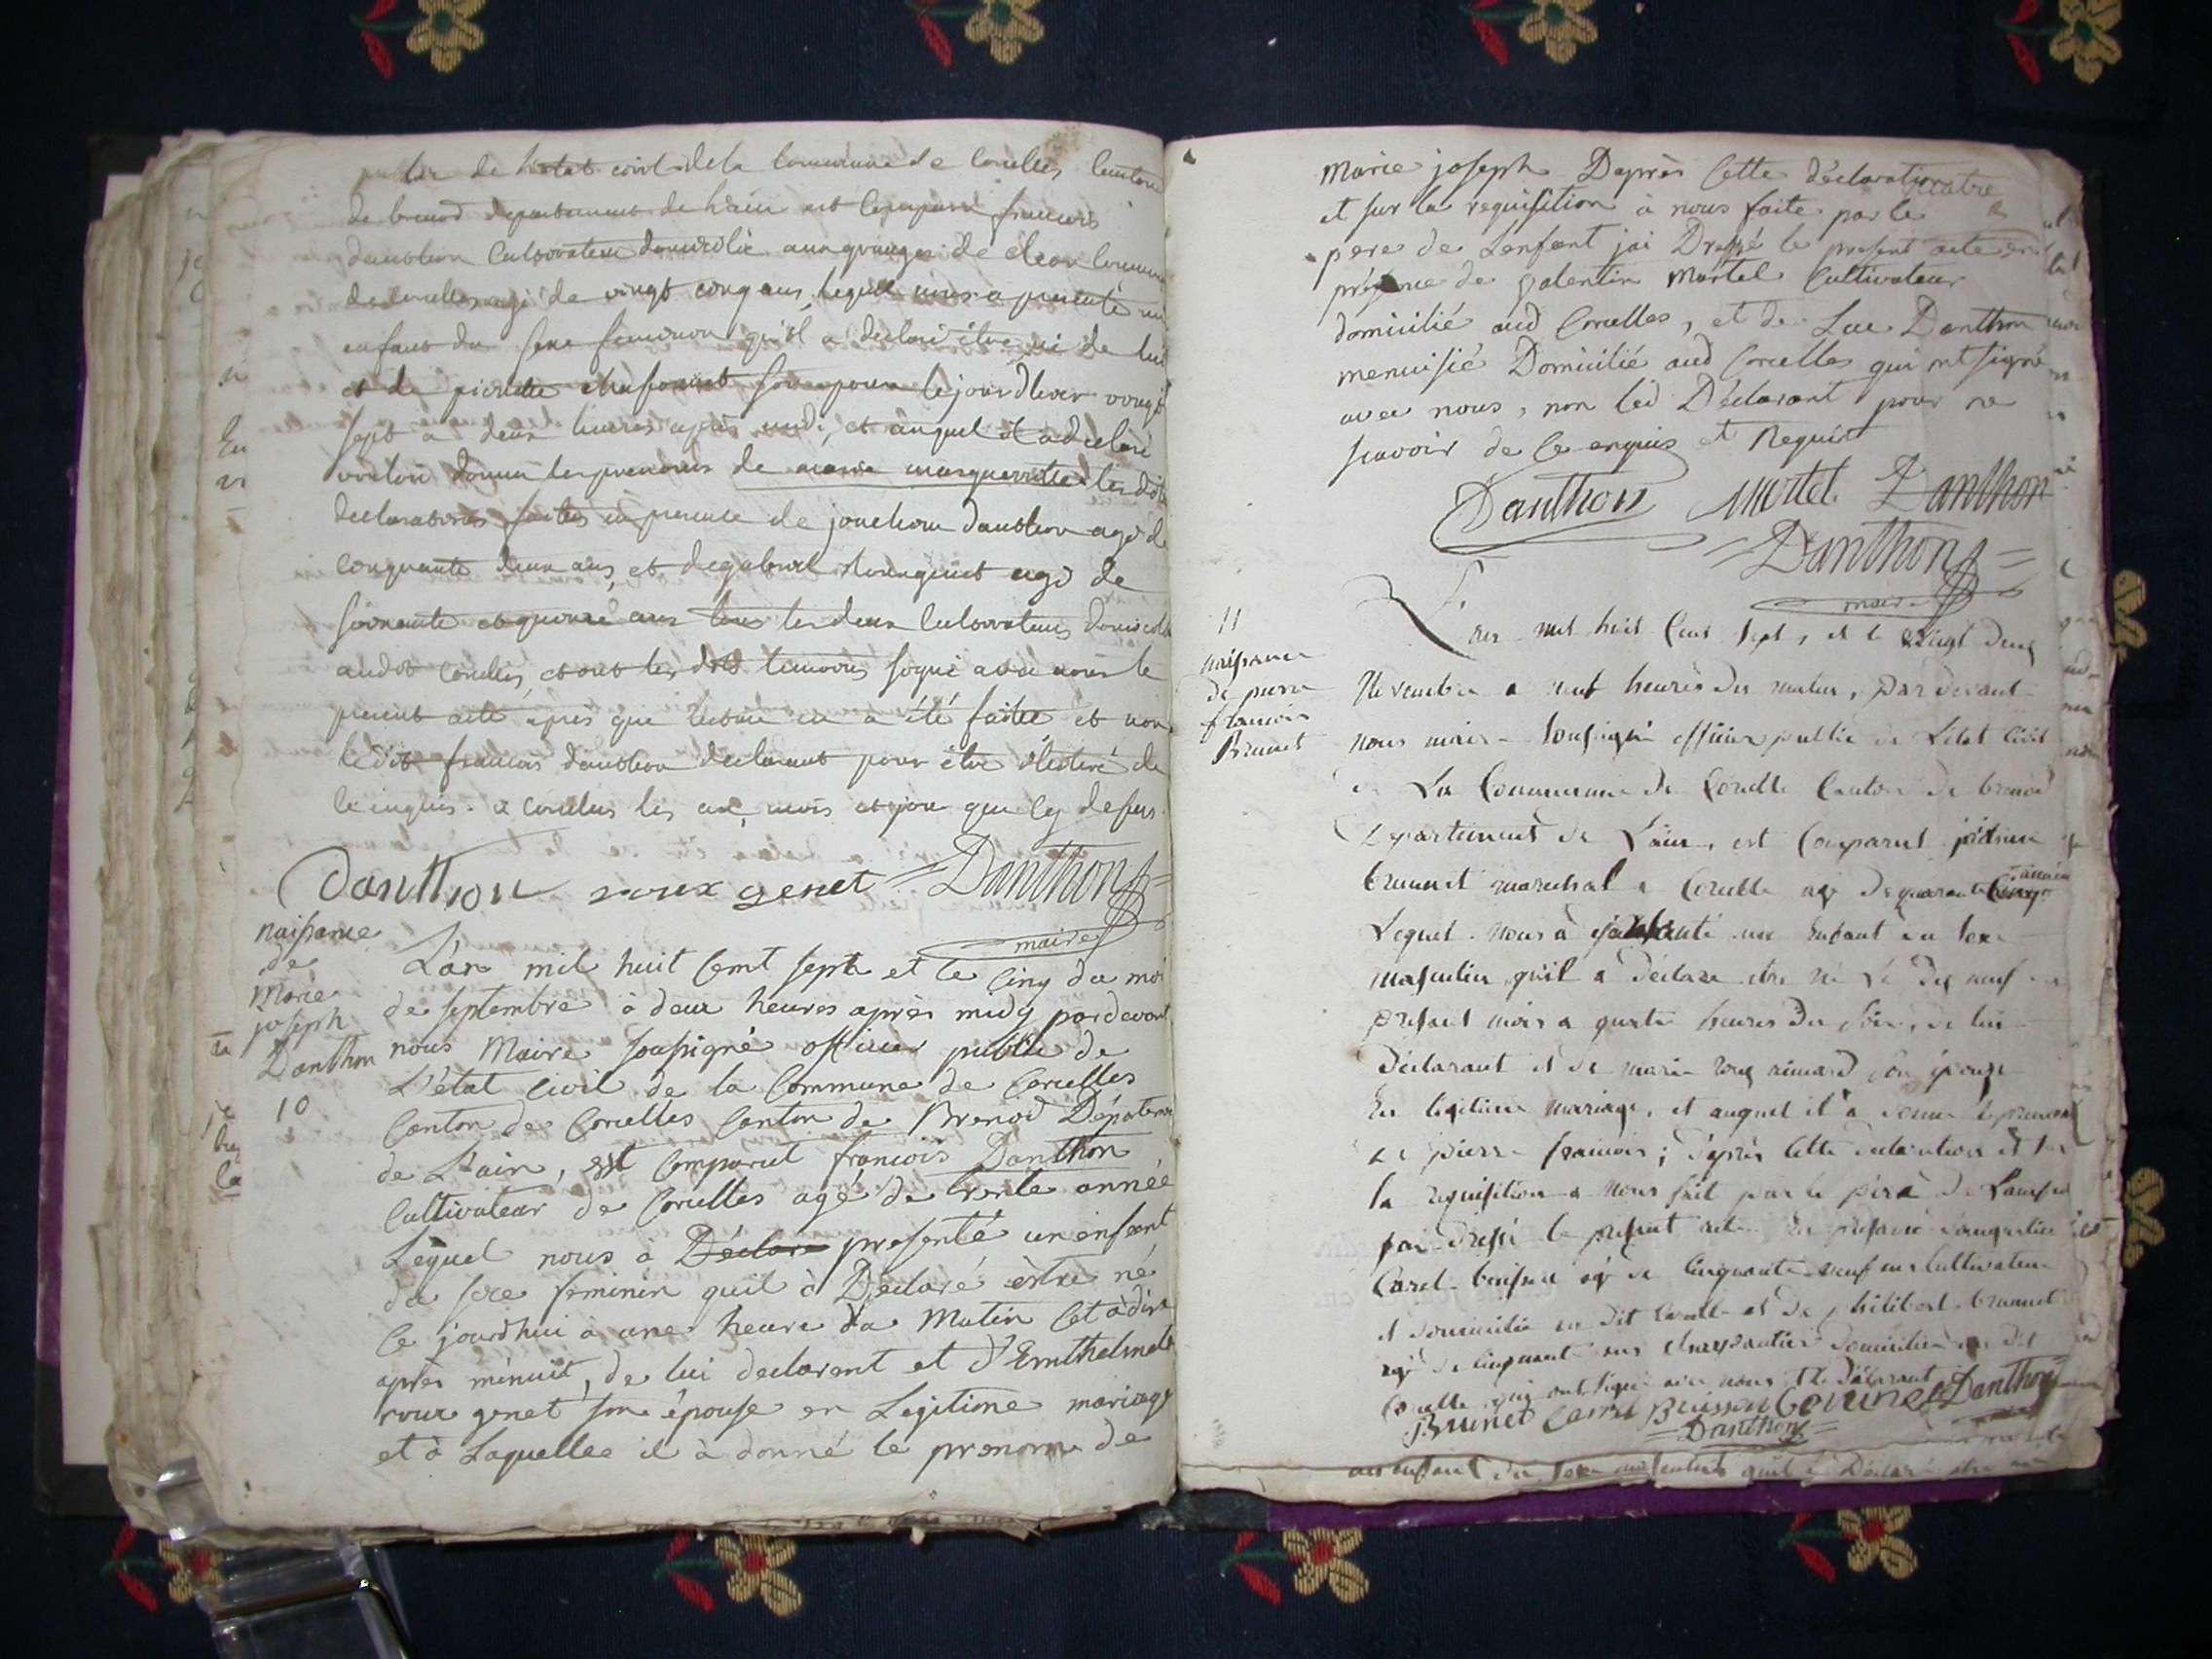 de l'etat civil de la commune de Corcelles Canton
de brenod departement de l'ain est comparu francois
danthon Cultivateur domicilié aux granges de
de Corcelles agé de vingt cinq ans, lequel nous a presenté un
enfant du sexe feminin qu'il a declaré être né de lui
et de pierrette son epouse le jour d'hier vingt
sept a deux heures après midi, et auquel il a declaré
vouloir donner les prenoms de marie marguerritte les dittes
declarations faites en presence de danthon agé de
cinquante deux ans, et de rouxgenet agé de
soixante et quinze ans tous les deux Cultivateurs
audit Corcelles, et ont les dits temoins signé avec nous le
present acte après que lecture en a été faitte et non
ledit francois danthon declarant pour être de
ce enquis. a Corcelles les an, mois et jour que cy dessus.
Danthon roux genet Danthon
maire
naissance
de
Marie
joseph
Danthon
10
L'an mil huit Cent sept et le Cinq du moi
de septembre à deux heures après midy pardevant
nous Maire soussigné officier public de
L'état civil de la Commune de Corcelles
Canton de Corcelles Canton de Brenod
de L'ain, est Comparut francois Danthon
Cultivateur de Corcelles agé de trente année
Lequel nous à Déclare presenté un enfant
du sexe feminin quil à Déclaré être né
Ce jourdhui à une heure du Matin Cet à dire
après minuit, de lui declarant et d'Emthelmette
roux genet son épouse en Legitime mariage
et à Laquellee il à donné le prenom de
Marie joseph Daprès Cette déclaration
et sur la requisition à nous faite par le
pere de Lenfant jai Dressé le present acte en
présence de valentin Martel Cultivateur
domicilié aud Corcelles, et de Luc Danthon
menuisié Domicilié aud Corcelles qui ont signé
avec nous, non led Déclarant pour ne
scavoir de Ce enquis et Requit
Danthon Martel Danthon
Danthon
maire
11
naissance
de pierre
francois
Brunet
L'an mil huit Cent sept, et le vingt deux
Novembre a neuf heures du matin, par devant
nous maire soussigné officier public de L'état Civil
de La Commune de Corcelle Canton de brenod
Departement de L'ain, est Comparut
brunet marechal a Corcelle agé de quarante Cinq
Lequel nous à presenté un Enfant du sexe
masculin qu'il a déclare etre né le dix neuf du
présent mois a quatre heures du soir, de lui
déclarant et de marie son épouse
En légitime mariage, et auquel il a donné le prenom
de pierre francois; d'après Cette declaration et sur
la requisition a nous fait par le père de Lenfant
jai dressé le present acte en presence
Carrel buisson agé de Cinquante neuf ans Cultivateur
et domicilié au dit Corcelle et de philibert brunet
agé de Cinquante ans charpantier domicilié au dit
Corcelle qui ont signé avec nous et le déclarant
Brunet Carrel Buisson Brunet Danthon
Danthon
un enfant du sexe masculin quil à Déclaré etre né